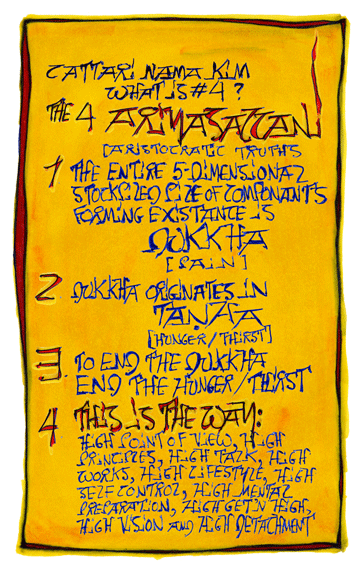 CATTARI NAMA KIM
WHAT IS #4?
THE 4 ARIYASACCANI
[ARISTOCRATIC TRUTHS
1 THE ENTIRE 5-DIMENSIONAL
STOCKPILED PILE OF COMPONANTS
FORMING EXISTANCE IS
DUKKHA
[PAIN]
2 DUKKHA ORIGINATES IN
TANHA
[HUNGER/THIRST]
3. TO END THE DUKKHA
END THE HUNGER/THIRST
4 THIS IS THE WAY:
HIGH POINT OF VIEW, HIGH
PRINCIPLES, HIGH TALK, HIGH
WORKS, HIGH LIFESTYLE, HIGH
SELF CONTROL, HIGH MENTAL
PREPARATION, HIGH GET'N HIGH,
HIGH VISION AND HIGH DETACHMENT